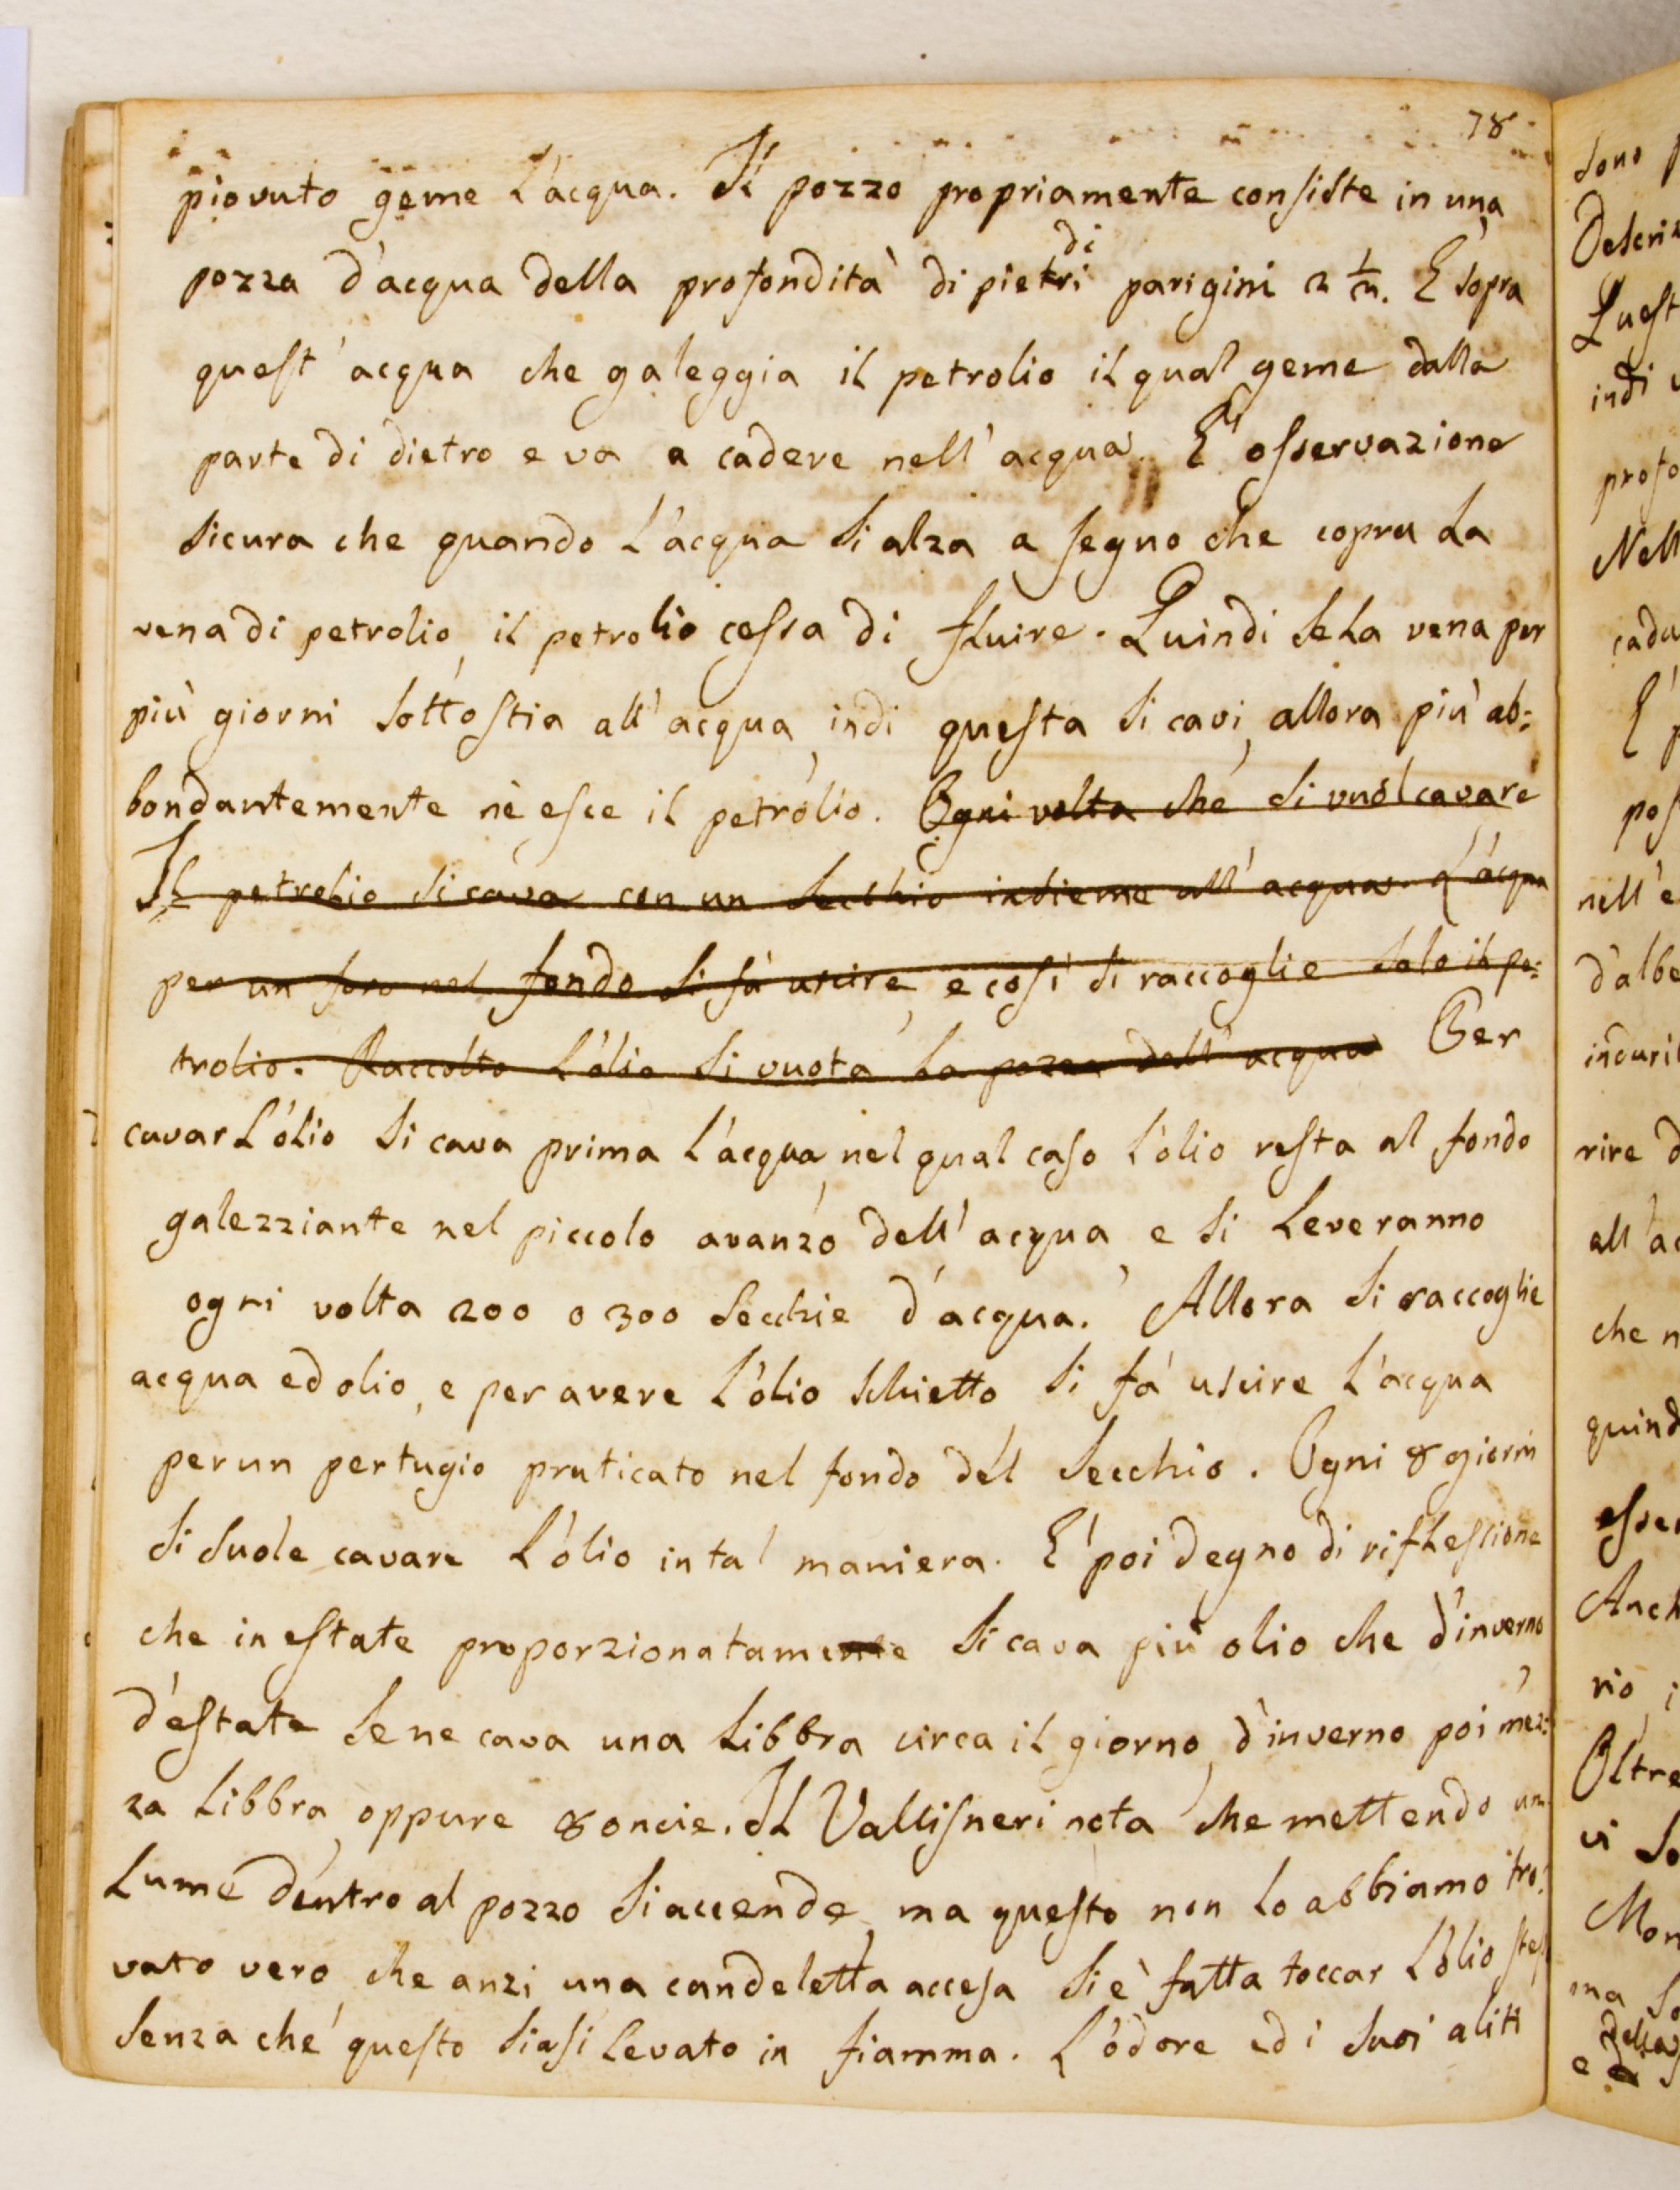 78
piovuto geme l'acqua. Il pozzo propriamente consiste in una
pozza d'acqua della profondità di pietri di parigini 2 1/2. È sopra
quest'acqua che galeggia il petrolio il qual geme dalla
parte di dietro e va a cadere nell'acqua. È osservazione
sicura che quando l'acqua si alza a segno che copra la
vena di petrolio, il petrolio cessa di fluire. Quindi se la vena per
più giorni sottostia all'acqua, indi questa si cavi, allora più ab:
bondantemente nè esce il petrolio. Ogni volta che si vuol cavare
Il petrolio si cava con un secchio insieme all'acqua. L'acqua
per un foro nel fondo si fà uscire, e così si raccoglie solo il pe:
trolio. Raccolto l'olio si vuota la pozza dell'acqua Per
cavar l'olio si cava prima l'acqua, nel qual caso l'olio resta al fondo
galezziante nel piccolo avanzo dell'acqua, e si leveranno
ogni volta 200 o 300 secchie d'acqua. Allora si raccoglie
acqua ed olio, e per avere l'olio schietto si fà uscire l'acqua
per un pertugio praticato nel fondo del secchio. Ogni 8 giorni
si suole cavare l'olio in tal maniera. È poi degno di riflessione
che in estate proporzionatamente si cava più olio che d'inverno,
d'estate se ne cava una libbra circa il giorno, d'inverno poi mez:
za libbra, oppure 8 oncie. Il Vallisneri nota che mettendo un
lume dentro al pozzo si accende, ma questo non lo abbiamo tro:
vato vero, che anzi una candeletta accesa si è fatta toccar l'olio
senza che questo siasi levato in fiamma. L'odore ed i suoi aliti
sono
Quest
indi
profo
Nell
E'
nell'e
d'albe
rire
all'ac
che
quind
Anch
Oltre
vi
Mon
ma
della
e